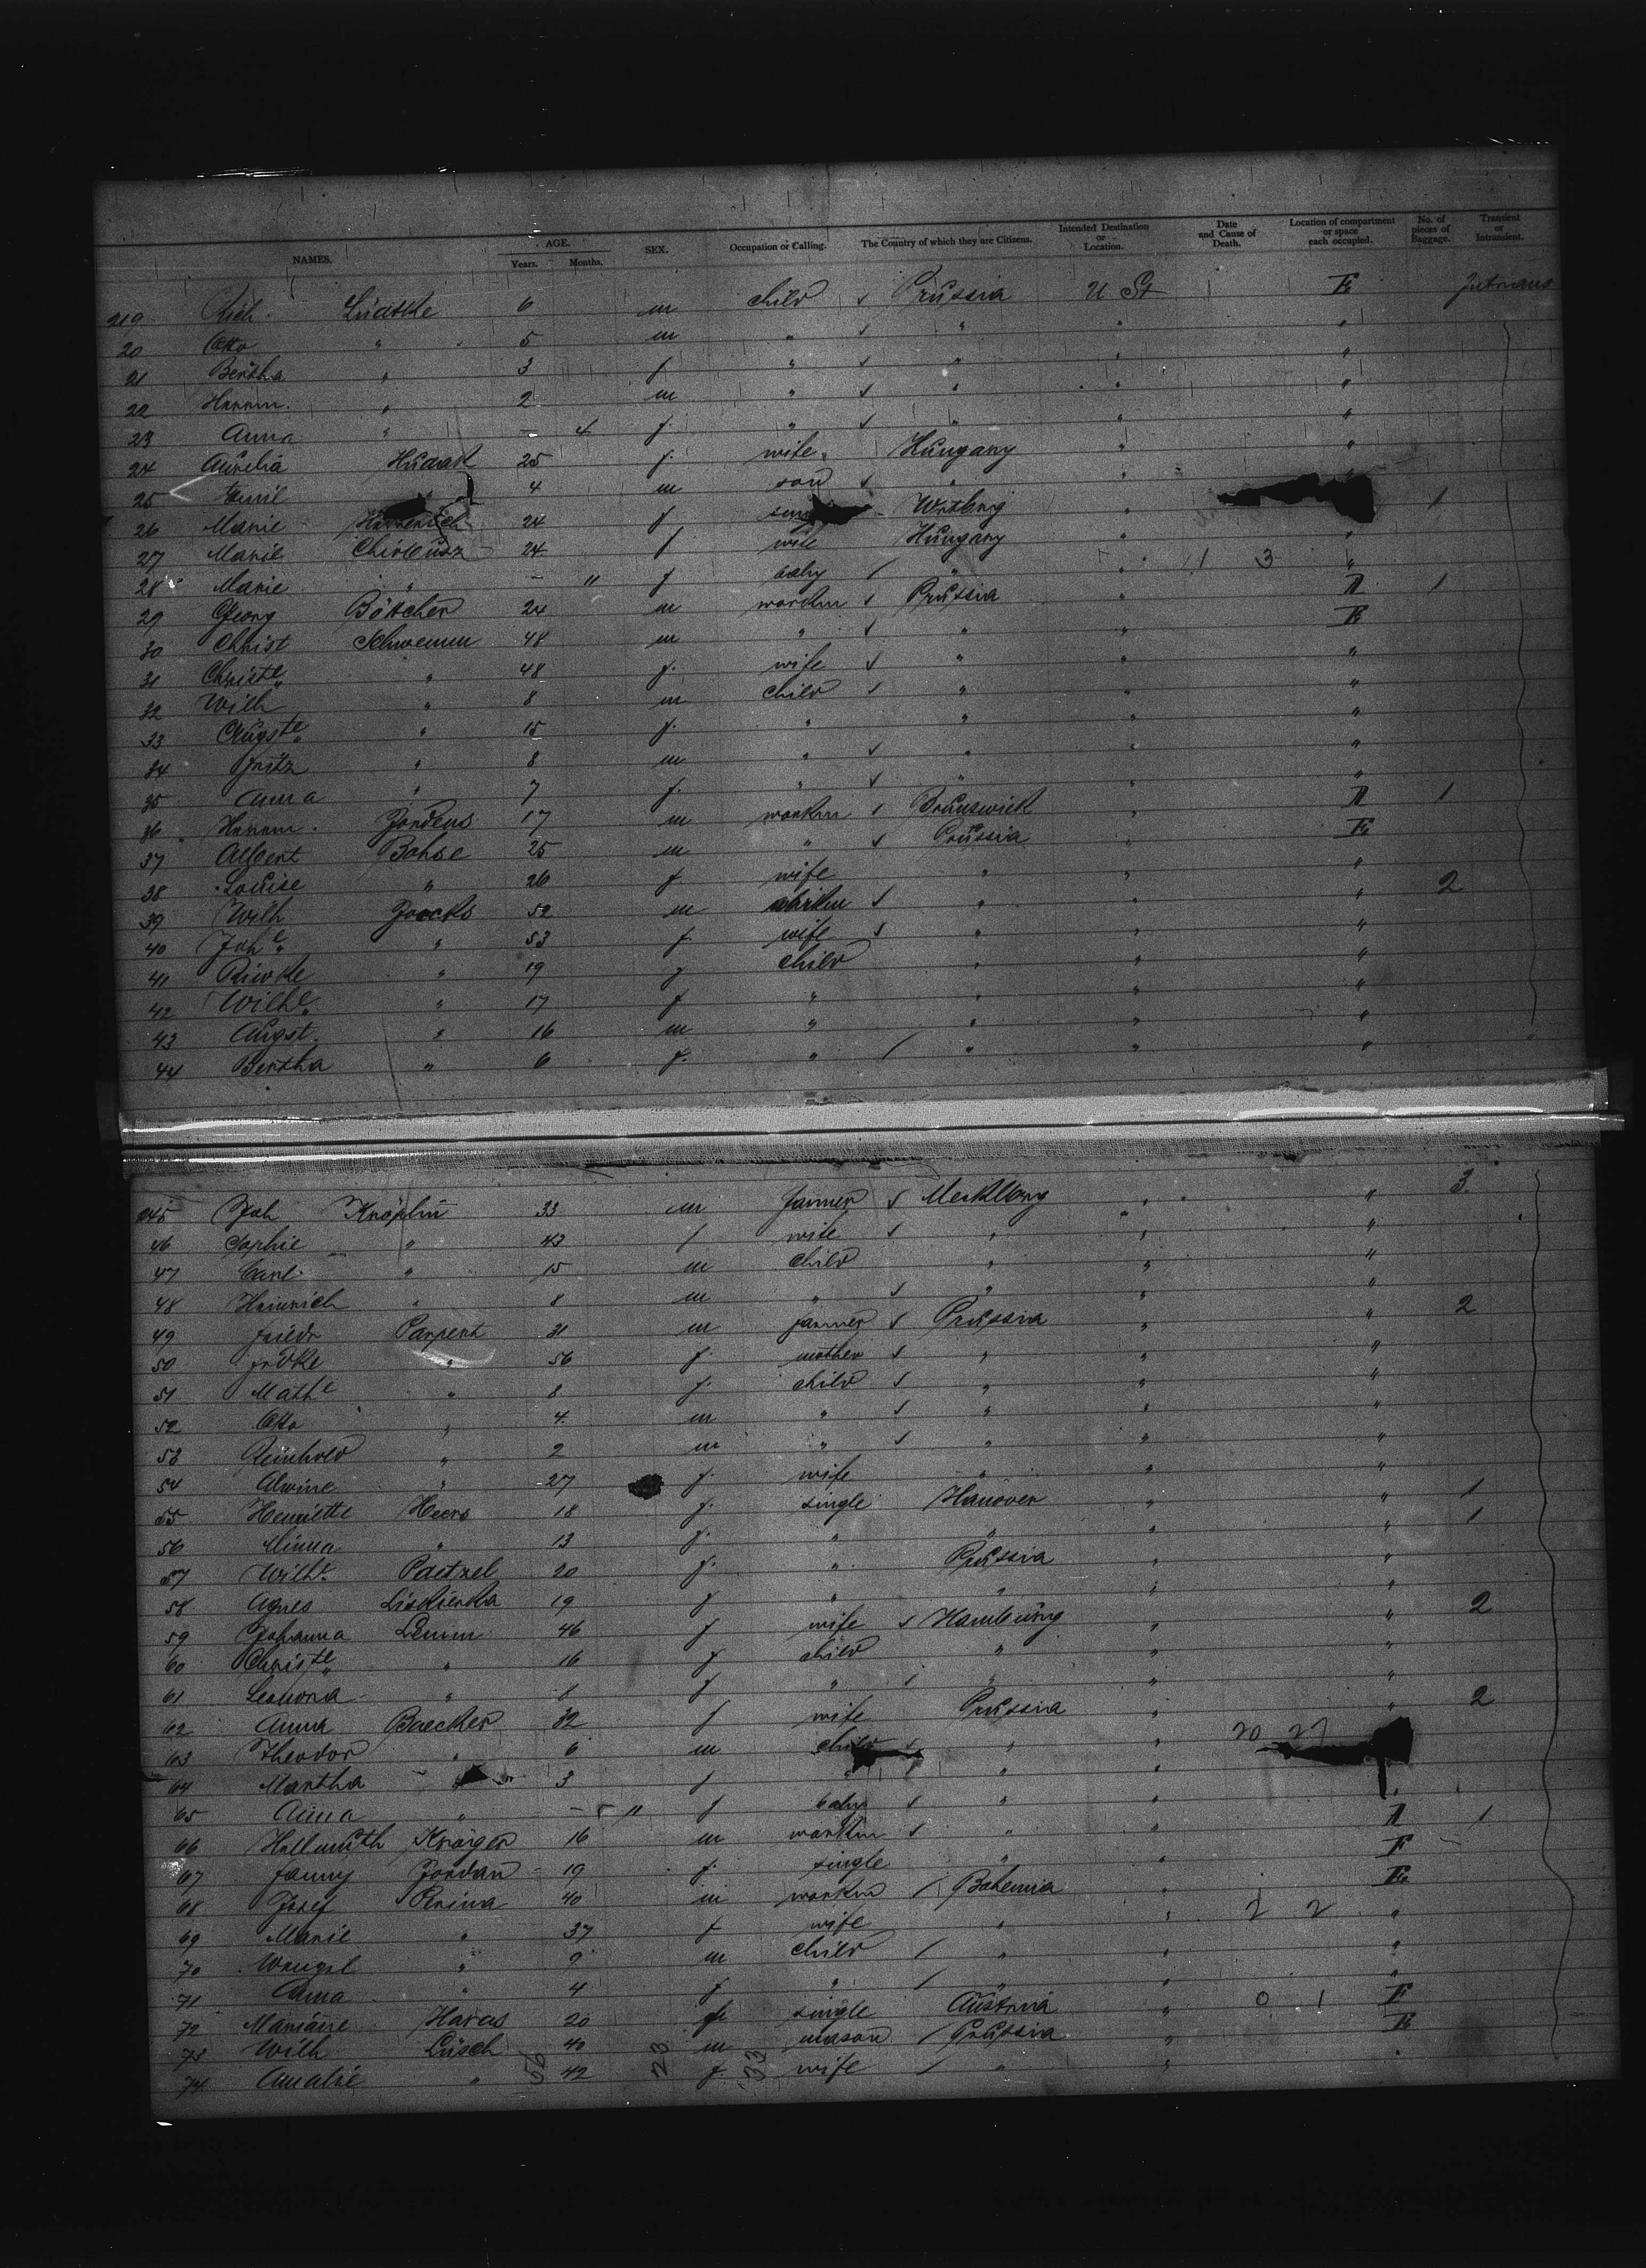 NAMES. AGE. Years. Months. SEX. Occupation or Calling. The Country of which they are Citizens. Intended Destination or Location. Date and Cause of Death. Location of compartment or space each occupied. No. of pieces of Baggage. Transient or Intransient.
219 Rich. Lüdtke 6 m child Prussia U St E
20 Otto " 5 m " " " "
21 Bertha " 3 f " " " "
22 Herrm. " 2 m " " " "
23 Anna " – 4 f. " " " "
24 Aurelia Hudak 25 f. wife Hungary " "
25 Emil " 4 m son " "
26 Marie 24 f " 1
27 Marie 24 f wife Hungary " "
28 Marie " – 11 f baby " " 1 3 "
29 Georg Böttcher 24 m workm Prussia " 1
30 Christ Schwemm 48 m " " " E
31 Christe " 48 f. wife " " "
32 Wilh " 8 m child " " "
33 Auguste " 15 f. " " "
34 Fritz " 8 m " " " "
35 Anna " 7 f. " " " "
36 Herrm. Jordens 17 m workm Brunswick " 1
37 Albert Bohse 25 m " Prussia " E
38 Louise " 26 f wife " " "
39 Wilh Joecks 52 m workm " " " 2
40 Johe " 53 f. wife " " "
41 " 19 f child " " "
42 Wilhe " 17 f " " " "
43 Augst. " 16 m " " " "
44 Bertha " 6 f. " " " "
245 Joh Knöplin 33 m farmer Mecklbrg " " 3.
46 Sophie " 43 f wife " " "
47 Carl " 15 m child " " "
48 Heinrich " 8 m " " " "
49 Friedr Parpert 31 m farmer Prussia " " 2
50 Frdke " 56 f. mother " " "
51 Mathe " 8 f. child " " "
52 Otto " 4. m " " " "
53 Reinhold " 2 m " " " "
54 Alwine " 27 f. wife " " "
55 Henriette Heers 18 f. single Hanover " " 1
56 Minna " 13 f. " " " " 1
57 Wilhe. Paetzel 20 f. " Prussia " "
58 Agnes 19 f " " " "
59 Johanna 46 f wife Hamburg " " 2
60 Christe " 16 f child " " "
61 Leonora " 8 f " " " "
62 Anna Baecker 32 f wife Prussia " " 2
63 Theodor " 6 m child " " 20 27
64 Martha " 3 f " " "
65 Anna " – 11 f baby " " "
66 Hellmuth Krüger 16 m workm " " 1
67 Fanny Jordan 19 f. single " F
68 Josef Perina 40 m workm Bohemia " E
69 Marie " 37 f wife " " 2 2 "
70 " 9 m child " " "
71 Anna " 4 f " " "
72 Haras 20 f single Austria " 0 1 F
73 Wilh Lüsch 40 m mason Prussia " E
74 Amalie " 42 f wife " " "
56 23 33